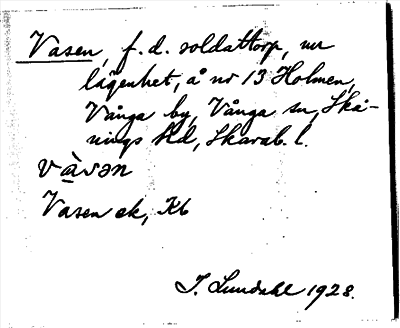 Vasen, f. d. soldattorp, nu
lägenhet, å nr 13 Holmen,
Vånga by, Vånga sn, Skå-
nings hd, Skarab. l.
vàsən
Vasen ek, Kb
I. Lundahl 1928.